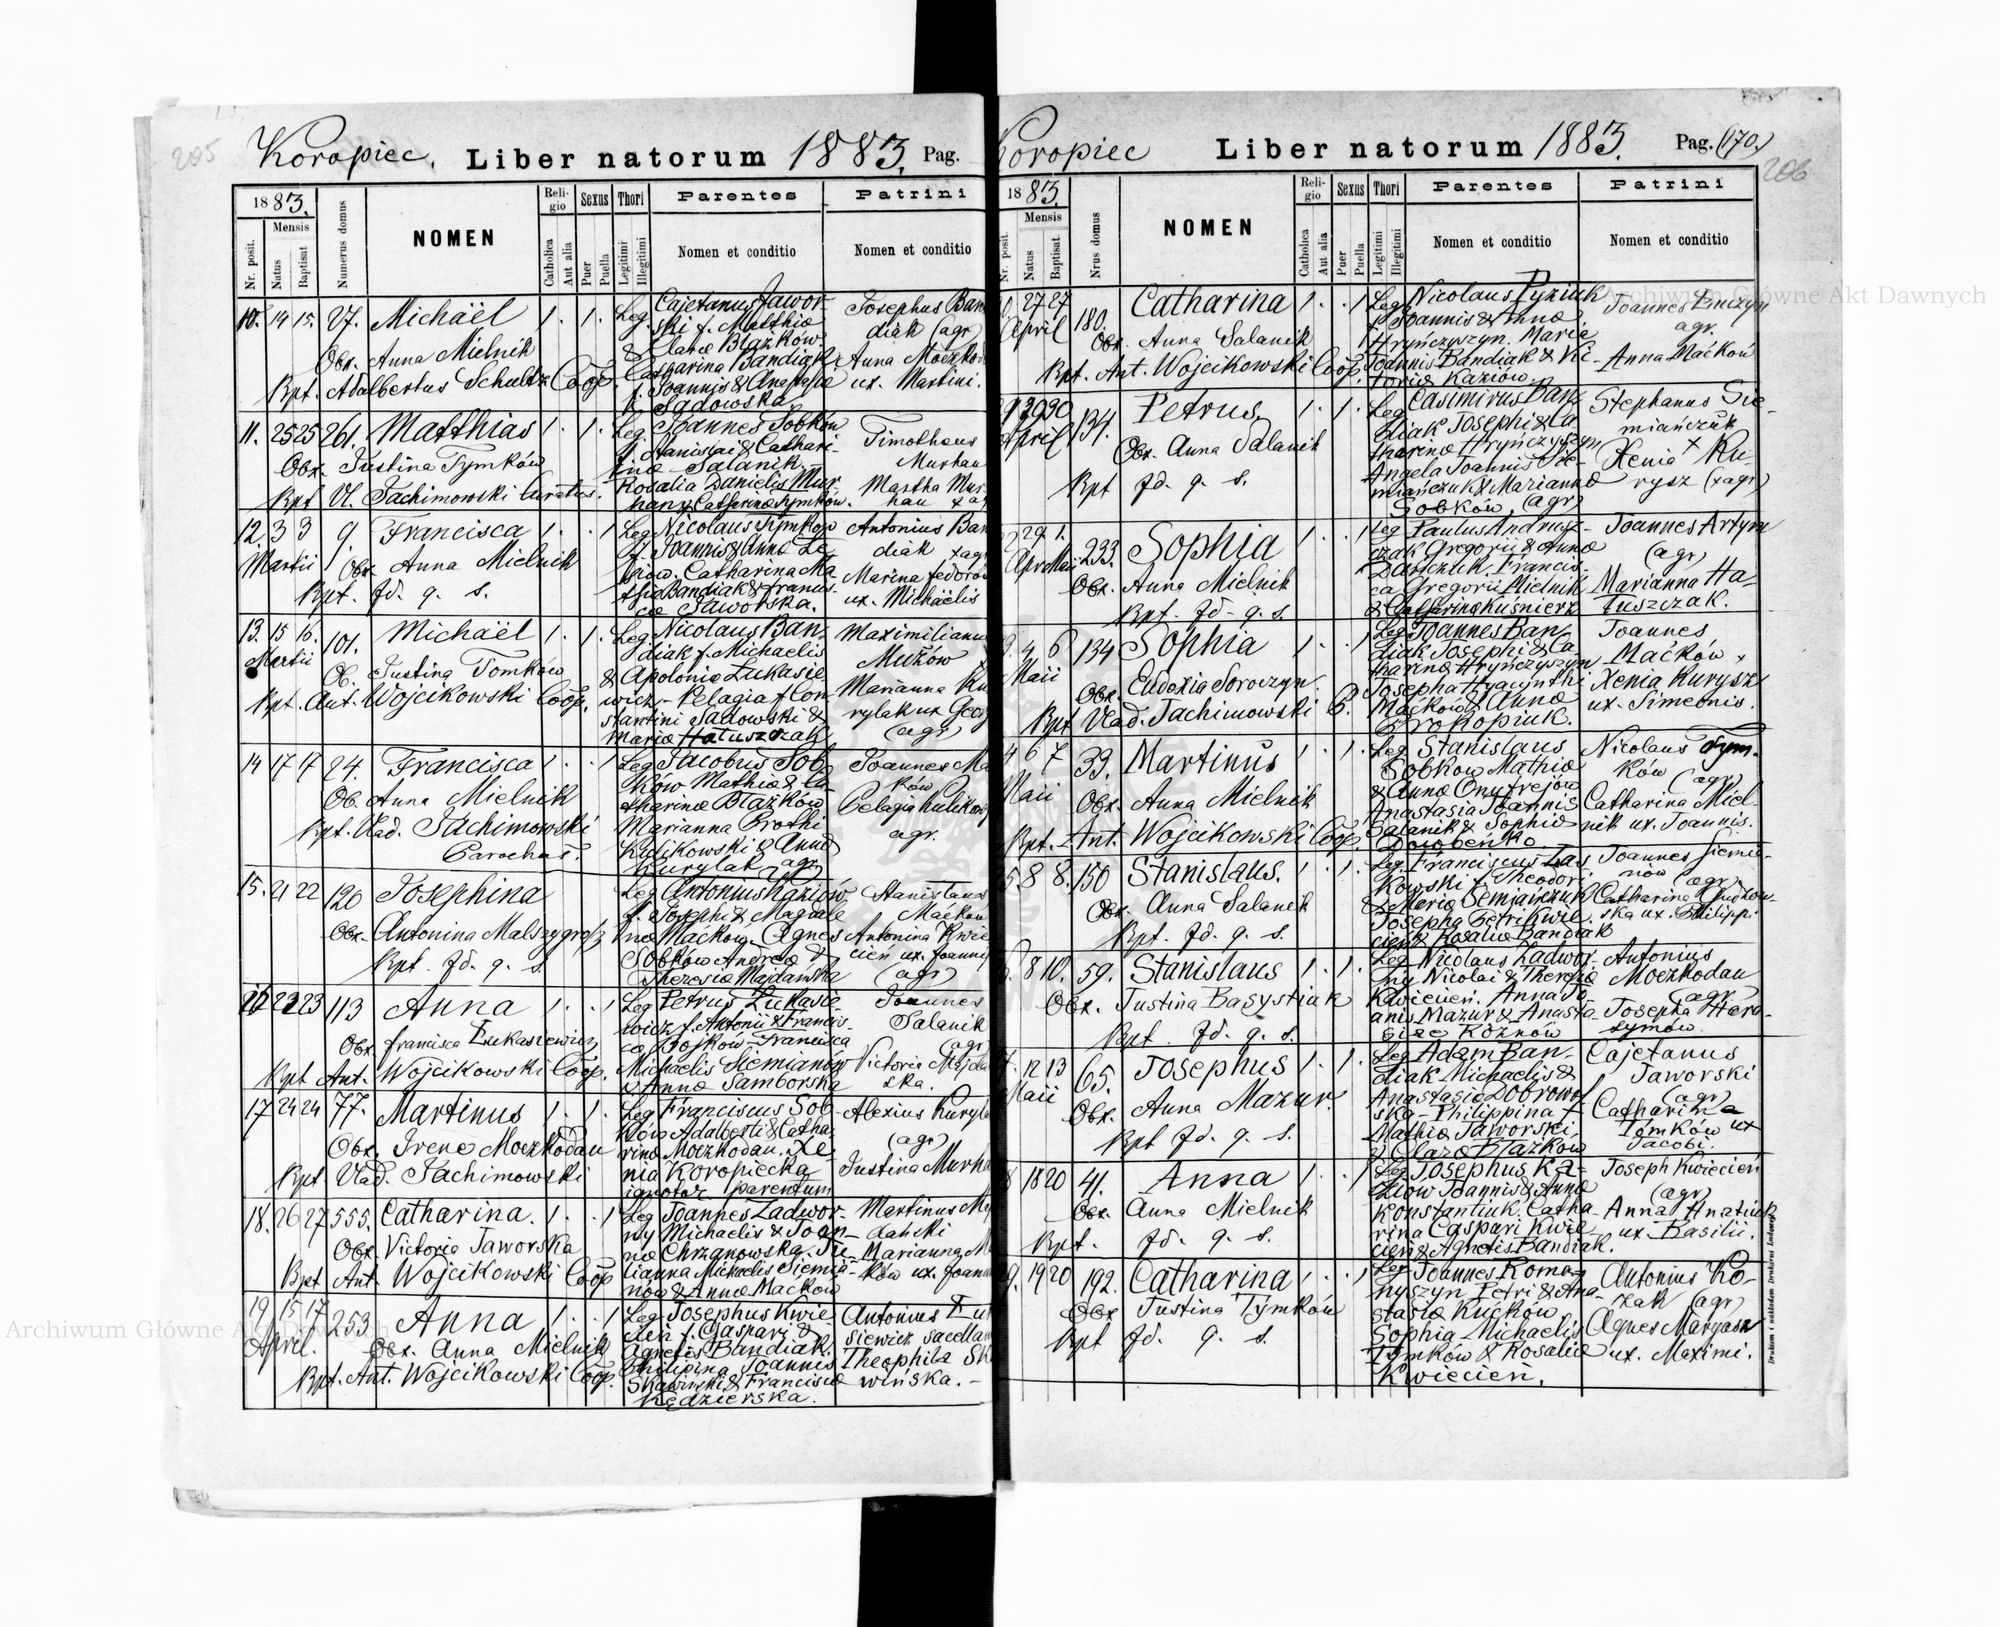 205
Koropiec. Liber natorum 1883. Pag.
1883.
Mensis
Nr. posit.
Natus
Baptisat
Numerus domus
NOMEN
Reli-
gio
Catholica
Aut alia
Sexus
Puer
Puella
Thori
Legitimi
Illegitimi
Parentes
Nomen et conditio
Patrini
Nomen et conditio
10. 14 15. 27. Michaël 1. 1. Leg
Obx. Anna Mielnik
Bpt. Adalbertus Schultz Coop.
Cajetanus Jawor-
ski f. Matthiæ
& Claræ Błazków.
Catharina Bandiak
f. Joannis & Anastasiæ
Sadowska.
Josephus Ban
diak (agr)
Anna Moczkod
ux. Martini.
11. 25 25 261. Matthias 1. 1. Leg.
Obx. Justina Tymków
Bpt Vl. Jachimowski Curatus.
Joannes Sobków
f. Stanislai & Cathari-
næ Salanik.
Rosalia Danielis Mur-
han & Catherinæ Tymków.
Timotheus
Murhan
Martha Mur-
han x ag
12. 3 3 9. Francisca 1. 1 Leg
Martii Obx Anna Mielnik
Bpt. fd. q. s.
Nicolaus Tymków
f. Joannis & Annæ Le-
siow. Catharina Ma-
thiæ Bandiak & Francis-
cæ Jaworska.
Antonius Ban
diak xagr
Marina Fedorów
ux. Michaëlis
13. 15 16. 101. Michaël 1. 1. Leg
Martii Ob. Justina Tomków
Bpt. Ant. Wojcikowski Coop.
Nicolaus Ban-
diak f. Michaelis
& Apoloniæ Łukasie
wicz - Pelagia f Con-
stantini Sadowski &
Mariæ Hatuszczak
Maximilianu
Mużów
Marianna Ku
rylak ux Georg
(agr)
14 17 17 24. Francisca 1. 1 Leg
Ob. Anna Mielnik
Bpt. Vlad. Jachimowski
Parochus.
Jacobus Sob-
ków Mathiæ & Ca-
tharinæ Błazków
Marianna Prothi
Kulikowski & Annæ
Kurylak agr
Joannes Ma
ków
Pelagia Kulikows
agr.
15. 21 22 120 Josephina Leg
Obx. Antonina Malszygrosz
Bpt. fd. q. s.
Antonius Kaziów
f. Josephi & Magdale
næ Maćków. Agnes
Sobków Andreæ &
Theresiæ Majdańska
Stanislaus
Maćków
Antonina Kwie
cień ux. Joannis
(agr)
16 22 23 113 Anna 1. 1 Leg
Obx. Francisca Łukasiewicz
Bpt Ant. Wojcikowski Coop.
Petrus Łukasie-
wicz f. Antonii & Francis-
cæ Bojków - Francisca
Michaelis Siemianów
& Annæ Samborska
Joannes
Salanik
(agr)
Victoria Majdań
ska.
17 24 24 77. Martinus 1. 1. Leg
Obx. Irene Moczkodan
Bpt. Vlad. Jachimowski
Franciscus Sob-
ków Adalberti & Catha-
rinæ Moczkodan. Xe-
nia Koropiecka
ignotor. parentum
Alexius Kuryla
(agr)
Justina Murha
18. 26 27 555. Catharina. 1. 1 Leg
Obx. Victoria Jaworska
Bpt Ant Wojcikowski Coop
Joannes Zadwor-
ny Michaelis & Joan-
næ Chrzanowska. Ju-
lianna Michaelis Siemia-
nów & Annæ Maćków
Martinus Maj
dański
Marianna M
ków ux. Joann
19 15 17 253 Anna 1. 1 Leg
April. Obx. Anna Mielnik
Bpt. Ant. Wojcikowski Coop.
Josephus Kwie-
cień f. Gaspari &
Agnetis Bandiak.
Philipina Joannes
Skawiński & Franciscæ
Kędzierska.
Antonius Łu
siewicz sacellan
Theophila Sk
wińska. -
Koropiec Liber natorum 1883. Pag. (170.)
206
1883.
Mensis
Nr. posit.
Natus
Baptisat.
Nrus domus
NOMEN
Reli-
gio
Catholica
Aut alia
Sexus
Puer
Puella
Thori
Legitimi
Illegitimi
Parentes
Nomen et conditio
Patrini
Nomen et conditio
27 27 180. Catharina 1. 1 Leg
April Obx. Anna Salanik
Bpt. Ant. Wojcikowski Coop.
Nicolaus Pyziuk
f Joannis & Annæ
Hryńczyszyn. Maria
Joannis Bandiak & Vic-
toriæ Kaziów.
Joannes
agr.
Anna Maćków
29 30 134. Petrus 1. 1. Leg
April Obx. Anna Salanik
Bpt fd. q. s.
Casimirus Ban-
diak Josephi & Ca
tharinæ Hryńczyszyn
Angela Joannis Sie-
miańczuk & Mariannæ
Sobków, (agr)
Stephanus Sie-
miańczuk
Xenia x Ku-
rysz (xagr)
29 1. 233. Sophia 1. 1 Leg
Apr Maii Obx. Anna Mielnik
Bpt. fd. q. s.
Paulus Andrusz-
czak Gregorii & Annæ
Danczuk. Francis-
ca Gregorii Mielnik
& Catharinæ Kuśnierz
Joannes Artym
(agr)
Marianna Ha-
tuszczak.
4 6 134 Sophia 1. 1 Leg
Maii Obx. Eudoxia Soroczyn.
Bpt Vlad. Jachimowski P.
Joannes Ban-
diak Josephi & Ca-
tharinæ Hryńczyszyn
Josepha Hyacynthi
Maćków & Annæ
Prokopiuk.
Joannes
Maćków x
Xenia Kurysz
ux. Simeonis.
4 6 7 39. Martinus 1. 1. Leg
Maii Obx. Anna Mielnik
Bpt. Ant. Wojcikowski Coop.
Stanislaus
Sobków Mathiæ
& Annæ Onufrejów
Anastasia Joannis
Salanik & Sophiæ
Nicolaus Tym-
ków (agr)
Catharina Miel-
nik ux. Joannis.
5. 8 8. 150 Stanislaus. 1. 1. Leg
Obx. Anna Salanik
Bpt. fd. q. s.
Franciscus Las-
kowski f. Theodori
& Mariæ Semiańczuk
Josepha Petri Kwie-
cień & Rosaliæ Bandiak
Joannes Siemia-
nów (agr)
Catharina
ska ux. Philippi.
8 10. 59. Stanislaus 1. 1. Leg
Obx. Justina Basystiuk
Bpt. fd. q. s.
Nicolaus Zadwor-
ny Nicolai & Theresiæ
Kwiecień. Anna Jo-
anis Mazur & Anasta-
siæ Koznów
Antonius
Moczkodan
(agr)
Josepha Hara-
symów.
7. 12 13 65. Josephus 1. 1. Leg
Maii Obx. Anna Mazur.
Bpt fd. q. s.
Adam Ban-
diak Michaelis &
Anastasiæ Dobrowol-
ska - Philippina f
Mathiæ Jaworski,
& Claræ Błazków
Cajetanus
Jaworski
(agr)
Catharina
Tomków ux
Jacobi.
8 18 20 41. Anna 1. 1 Leg
Obx. Anna Mielnik
Bpt. fd. q. s.
Josephus Ka-
ziów Joannis & Annæ
Konstantiuk. Catha-
rina Caspari Kwie-
cień & Agnetis Bandiak.
Joseph Kwiecień
(agr)
Anna Hnatiuk
ux. Basilii.
9. 19 20 192. Catharina 1. 1 Leg
Obx Justina Tymków
Bpt fd. q. s.
Joannes Roma-
nyszyn Petri & Ana-
stasiæ Kućków
Sophia Michaelis
Tymków & Rosaliæ
Kwiecień.
Antonius Ko-
zak (agr)
Agnes Maryasz
ux. Maximi.
Archiwum Główne Akt Dawnych
Archiwum Główne Akt Dawnych